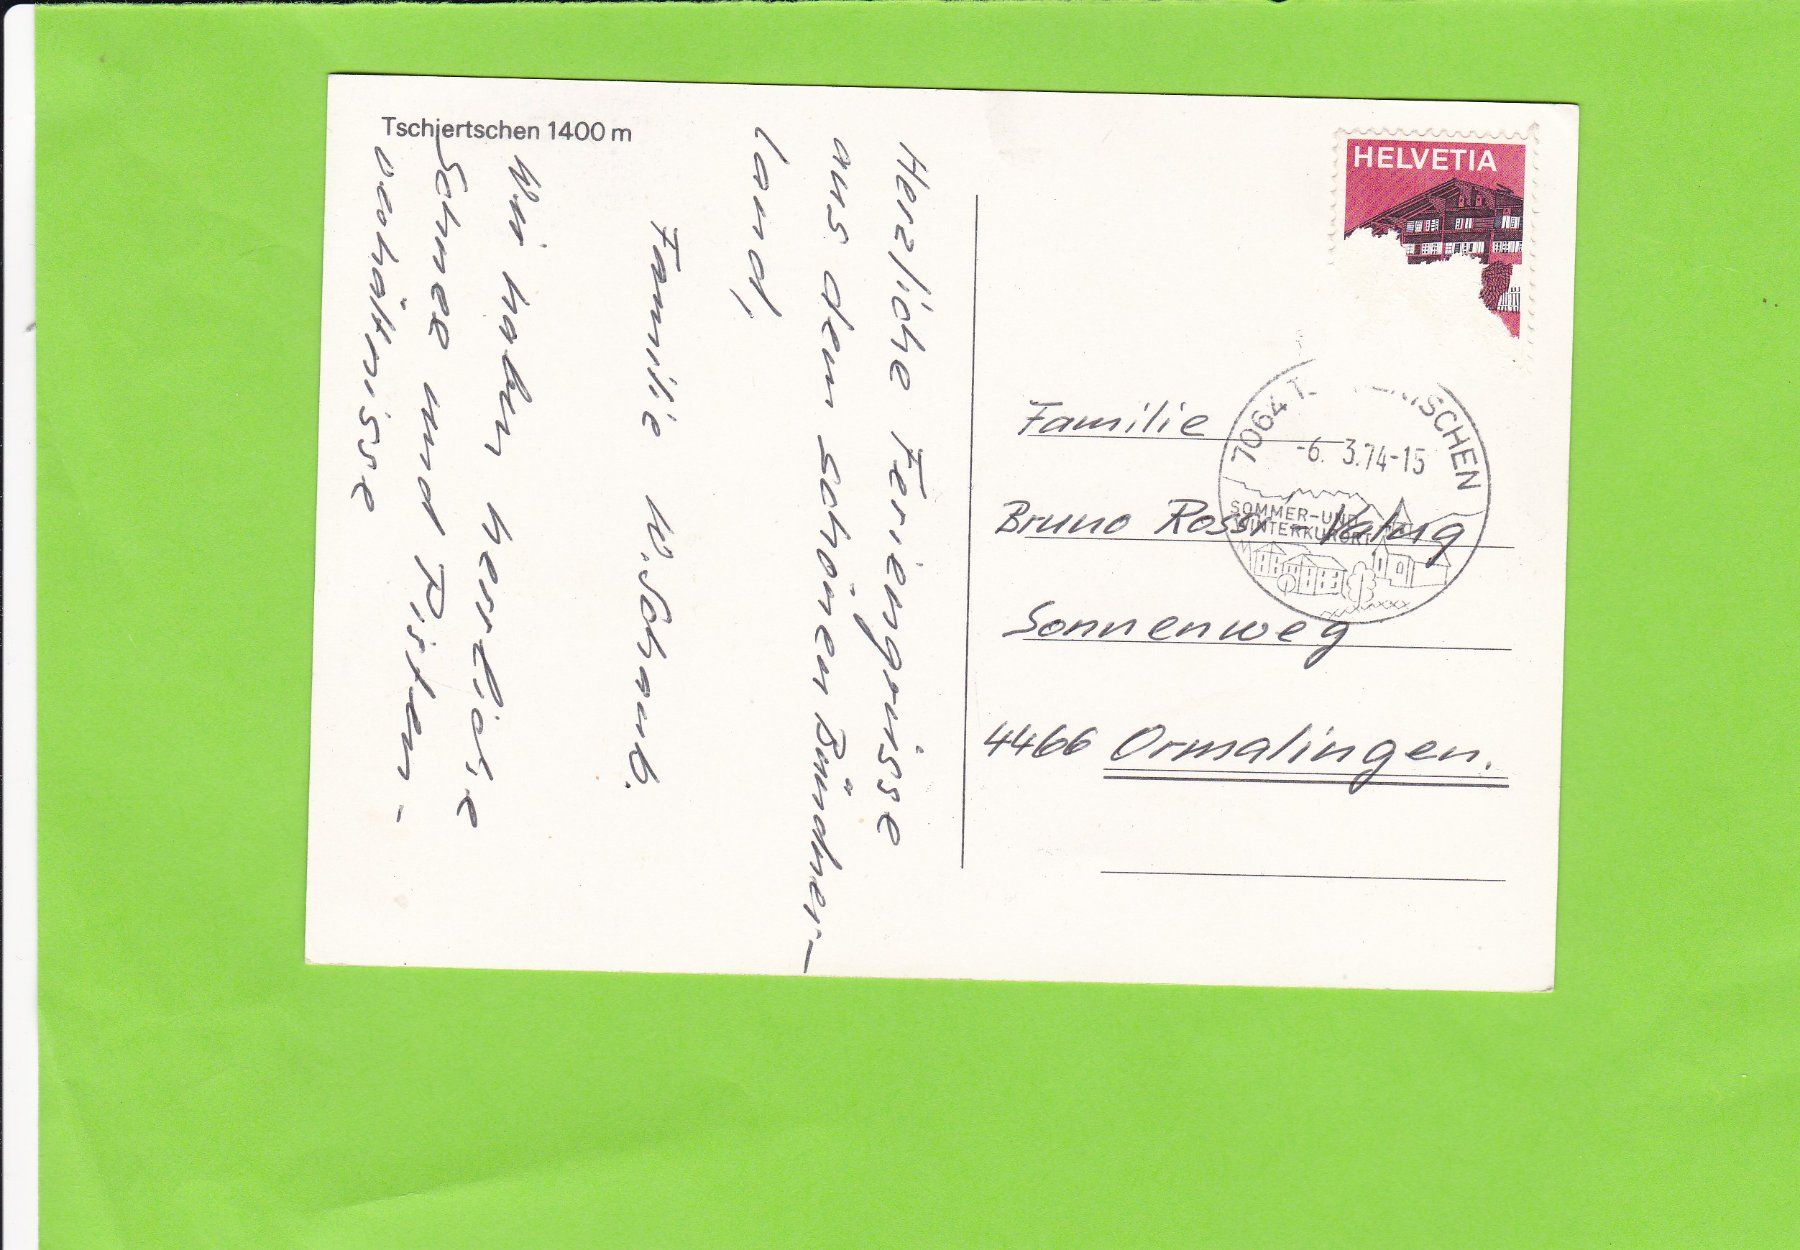 Tschiertschen 1400 m
Herzliche Feriengrüsse
aus dem schönen Bündner-
land,
Familie W. Schaub.
Wir haben herrliche
Schnee und Pisten-
verhältnisse
HELVETIA
7064 T ERTSCHEN
-6. 3.74-15
SOMMER-UND
WINTERKURORT
Familie
Bruno Rossi-
Sonnenweg
4466 Ormalingen.